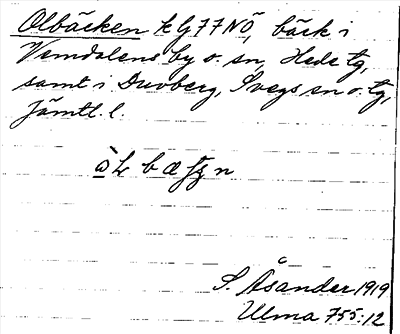 Olbäcken k G77NÖ, bäck i
Vemdalens by o. sn, Hede tg,
samt i Duvberg, Svegs sn o. tg,
Jämtl. l.
S. Åsander 1919
Ulma 755:12